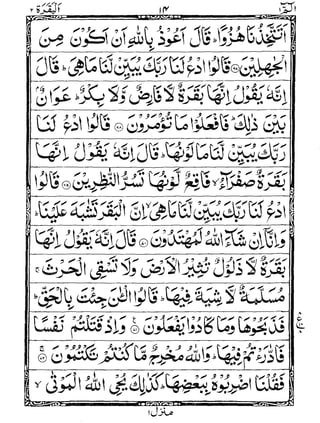 البقرة ٢ ١٤ الٓمّٓ ١
اَتَتَّخِذُنَا هُزُوًا ؕ قَالَ اَعُوْذُ بِاللّٰهِ اَنْ اَكُوْنَ مِنَ
الْجٰهِلِيْنَ ۝ قَالُوا ادْعُ لَنَا رَبَّكَ يُبَيِّنْ لَّنَا مَا هِىَ ؕ قَالَ
اِنَّهٗ يَقُوْلُ اِنَّهَا بَقَرَةٌ لَّا فَارِضٌ وَّلَا بِكْرٌ ؕ عَوَانٌۢ
بَيْنَ ذٰلِكَ ؕ فَافْعَلُوْا مَا تُؤْمَرُوْنَ ۝ قَالُوا ادْعُ لَنَا
رَبَّكَ يُبَيِّنْ لَّنَا مَا لَوْنُهَا ؕ قَالَ اِنَّهٗ يَقُوْلُ اِنَّهَا
بَقَرَةٌ صَفْرَآءُ ۙ فَاقِعٌ لَّوْنُهَا تَسُرُّ النّٰظِرِيْنَ ۝ قَالُوا
ادْعُ لَنَا رَبَّكَ يُبَيِّنْ لَّنَا مَا هِىَ ۙ اِنَّ الْبَقَرَ تَشٰبَهَ عَلَيْنَا ؕ
وَاِنَّاۤ اِنْ شَآءَ اللّٰهُ لَمُهْتَدُوْنَ ۝ قَالَ اِنَّهٗ يَقُوْلُ اِنَّهَا
بَقَرَةٌ لَّا ذَلُوْلٌ تُثِيْرُ الْاَرْضَ وَلَا تَسْقِى الْحَرْثَ ۚ
مُسَلَّمَةٌ لَّا شِيَةَ فِيْهَا ؕ قَالُوا الْـٰٔنَ جِئْتَ بِالْحَقِّ ؕ
فَذَبَحُوْهَا وَمَا كَادُوْا يَفْعَلُوْنَ ۝ وَاِذْ قَتَلْتُمْ نَفْسًا
فَادّٰرَءْتُمْ فِيْهَا ؕ وَاللّٰهُ مُخْرِجٌ مَّا كُنْتُمْ تَكْتُمُوْنَ ۝
فَقُلْنَا اضْرِبُوْهُ بِبَعْضِهَا ؕ كَذٰلِكَ يُحْىِ اللّٰهُ الْمَوْتٰى ۙ
منزل ١